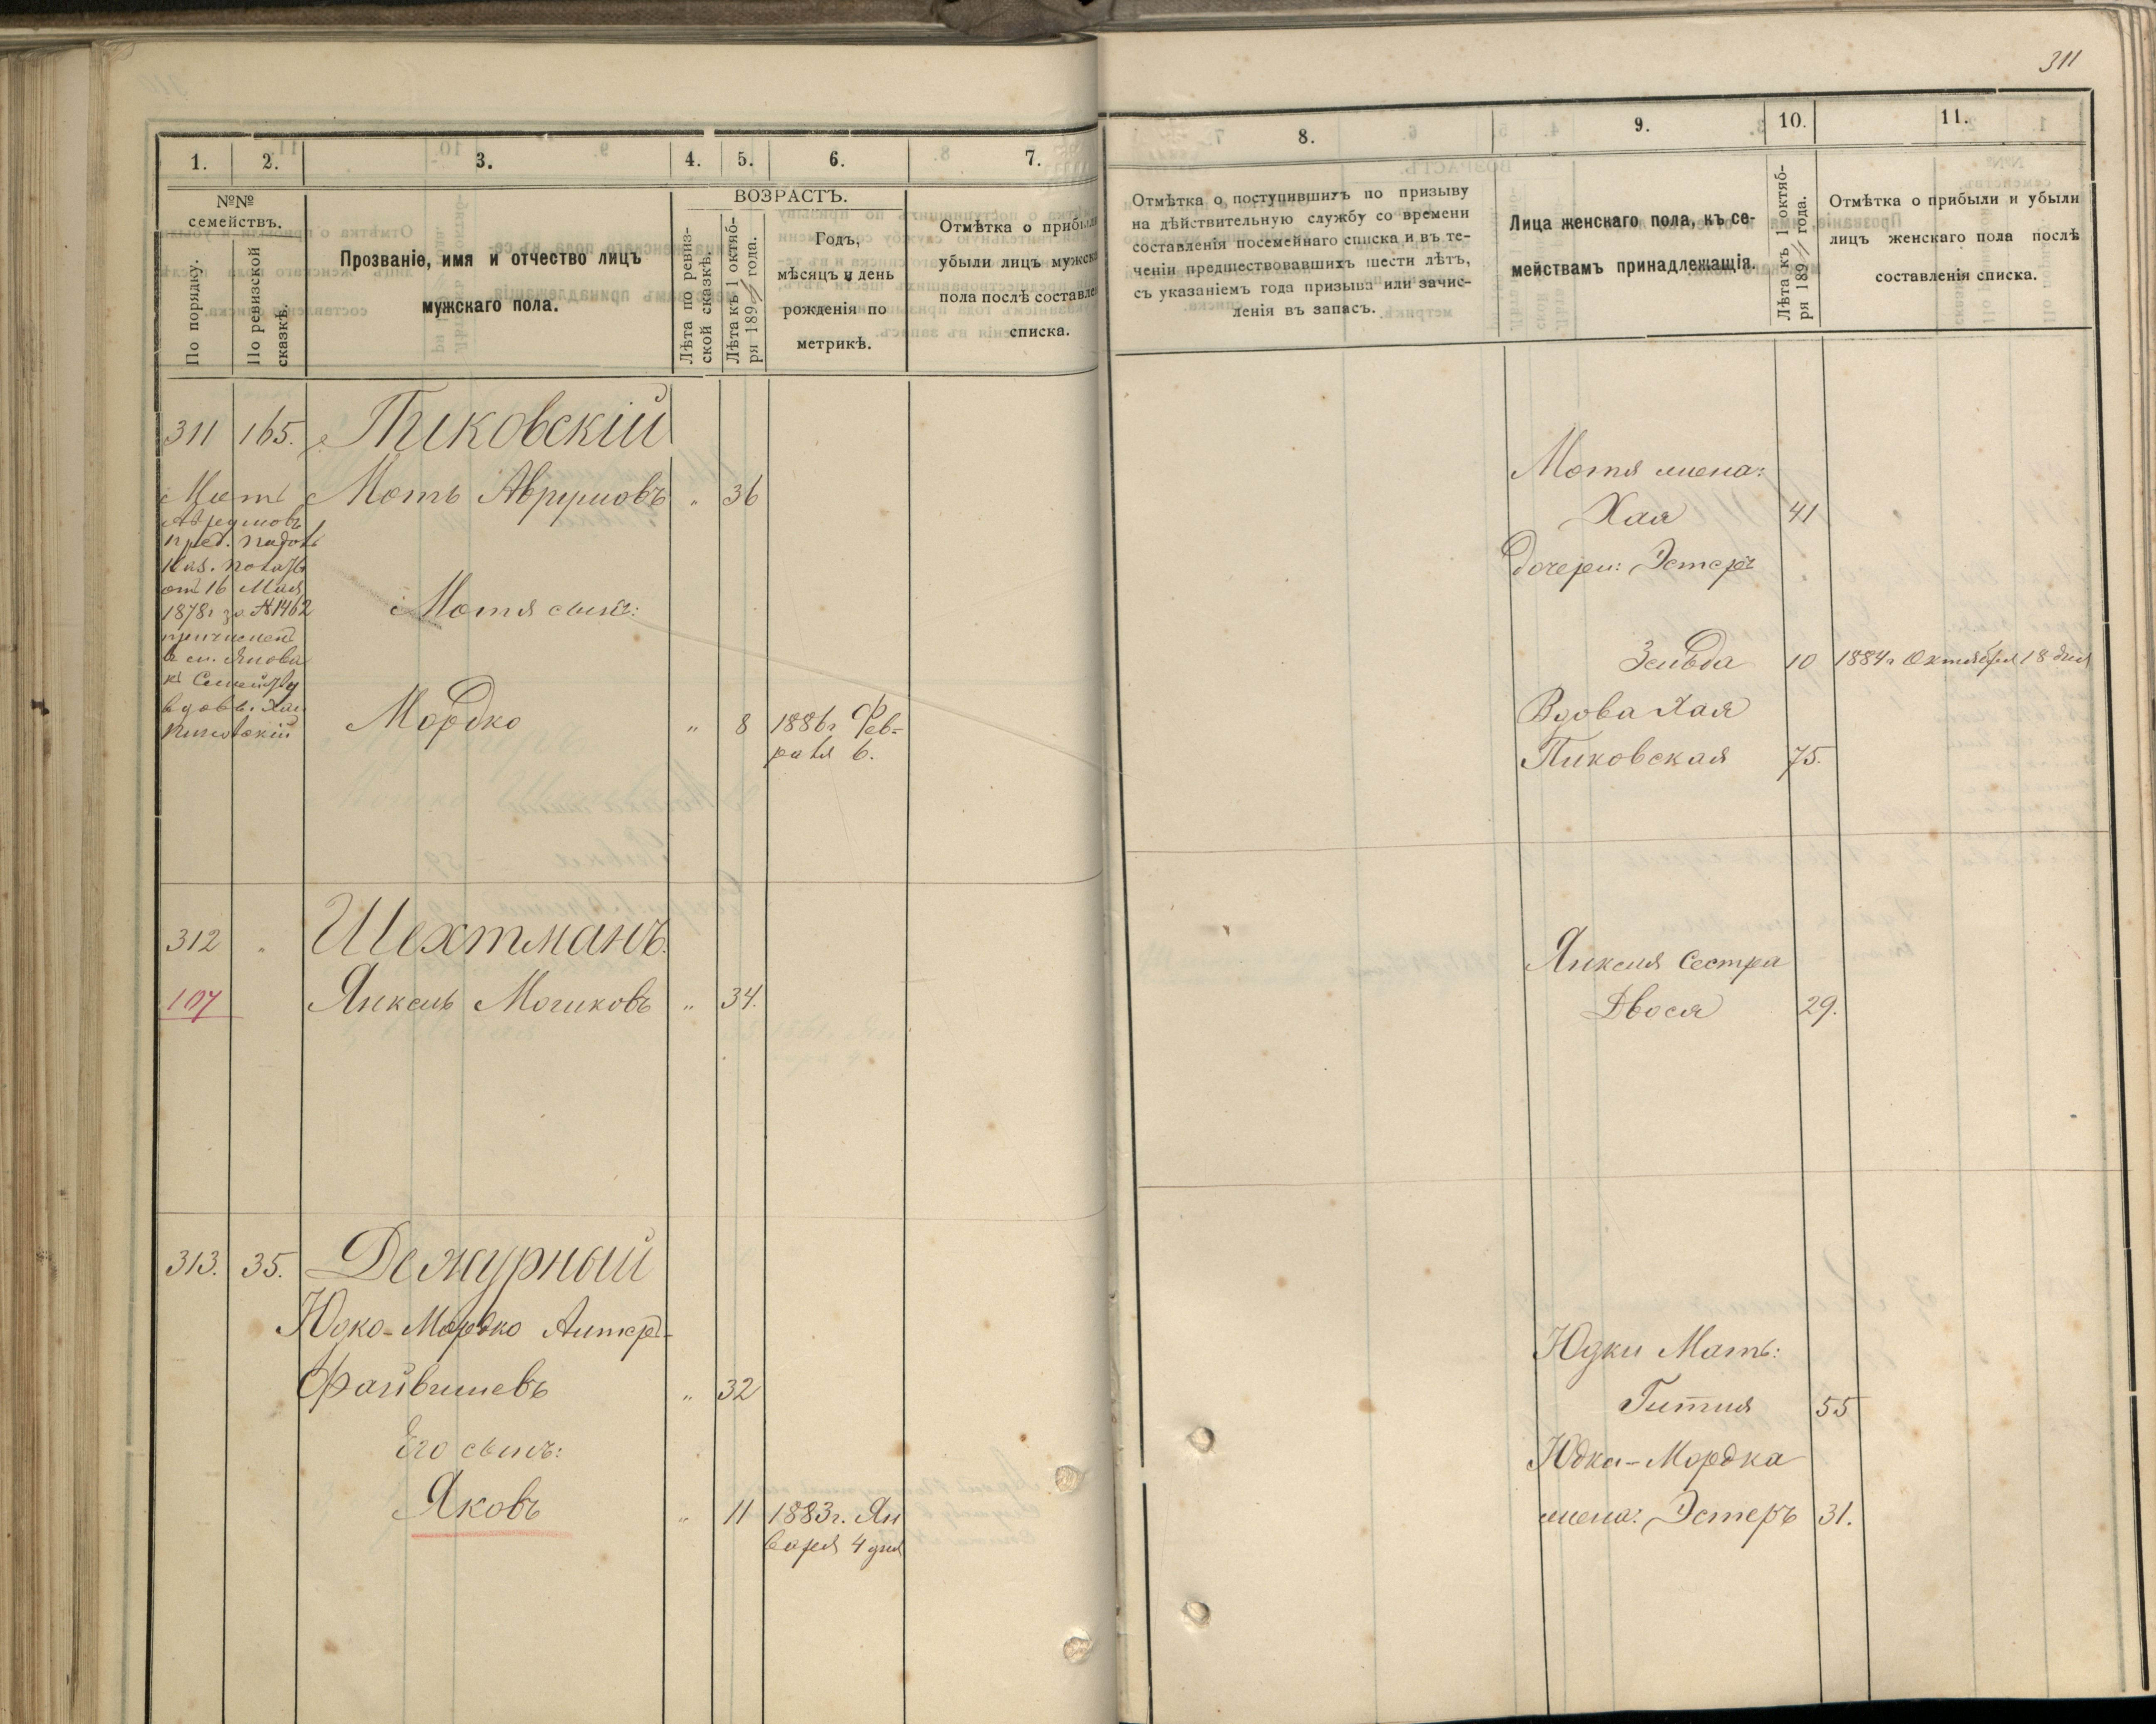 311
1. 2. 3. 4. 5. 6. 7.
№№ семействъ.
По порядку.
По ревизской сказкѣ.
Прозваніе, имя и отчество лицъ
мужскаго пола.
ВОЗРАСТЪ.
Лѣта по ревиз-
ской сказкѣ.
Лѣта къ 1 октяб-
ря 1894 года.
Годъ,
мѣсяцъ и день
рожденія по
метрикѣ.
Отмѣтка о прибыли
убыли лицъ мужска
пола послѣ составле
списка.
311 165. Пиковскій
Мотъ Аврумовъ " 36
Мот
Аврумовъ
пред. Подол
Каз. Палаты
от 16 Мая
1878г за №1462
причислен
в см. Янова
къ Семейству
вдовы. Хаи
Пиковскій
Мотя сынъ:
Мордко " 8 1886г Фев-
раля 6.
312 " Шехтманъ.
107 Янкель Мошковъ " 34.
313. 35. Дежурный
Юдко-Мордко Антер-
Файвишевъ " 32
Его сынъ:
Яковъ " 11 1883г. Ян
варя 4 дня
8. 9. 10. 11.
Отмѣтка о поступившихъ по призыву
на дѣйствительную службу со времени
составленія посемейнаго списка и въ те-
ченіи предшествовавшихъ шести лѣтъ,
съ указаніемъ года призыва или зачис-
ленія въ запасъ.
Лица женскаго пола, къ се-
мействамъ принадлежащія.
Лѣта къ 1 октяб-
ря 1894 года.
Отмѣтка о прибыли и убыли
лицъ женскаго пола послѣ
составленія списка.
Мотя жена:
Хая 41
дочери: Эстеръ
Зельда 10 1884г Октября 18 дня
Вдова Хая
Пиковская 75.
Янкеля Сестра
Двося 29.
Юдки Мать:
Гитля 55
Юдка-Мордка
жена: Эстеръ 31.